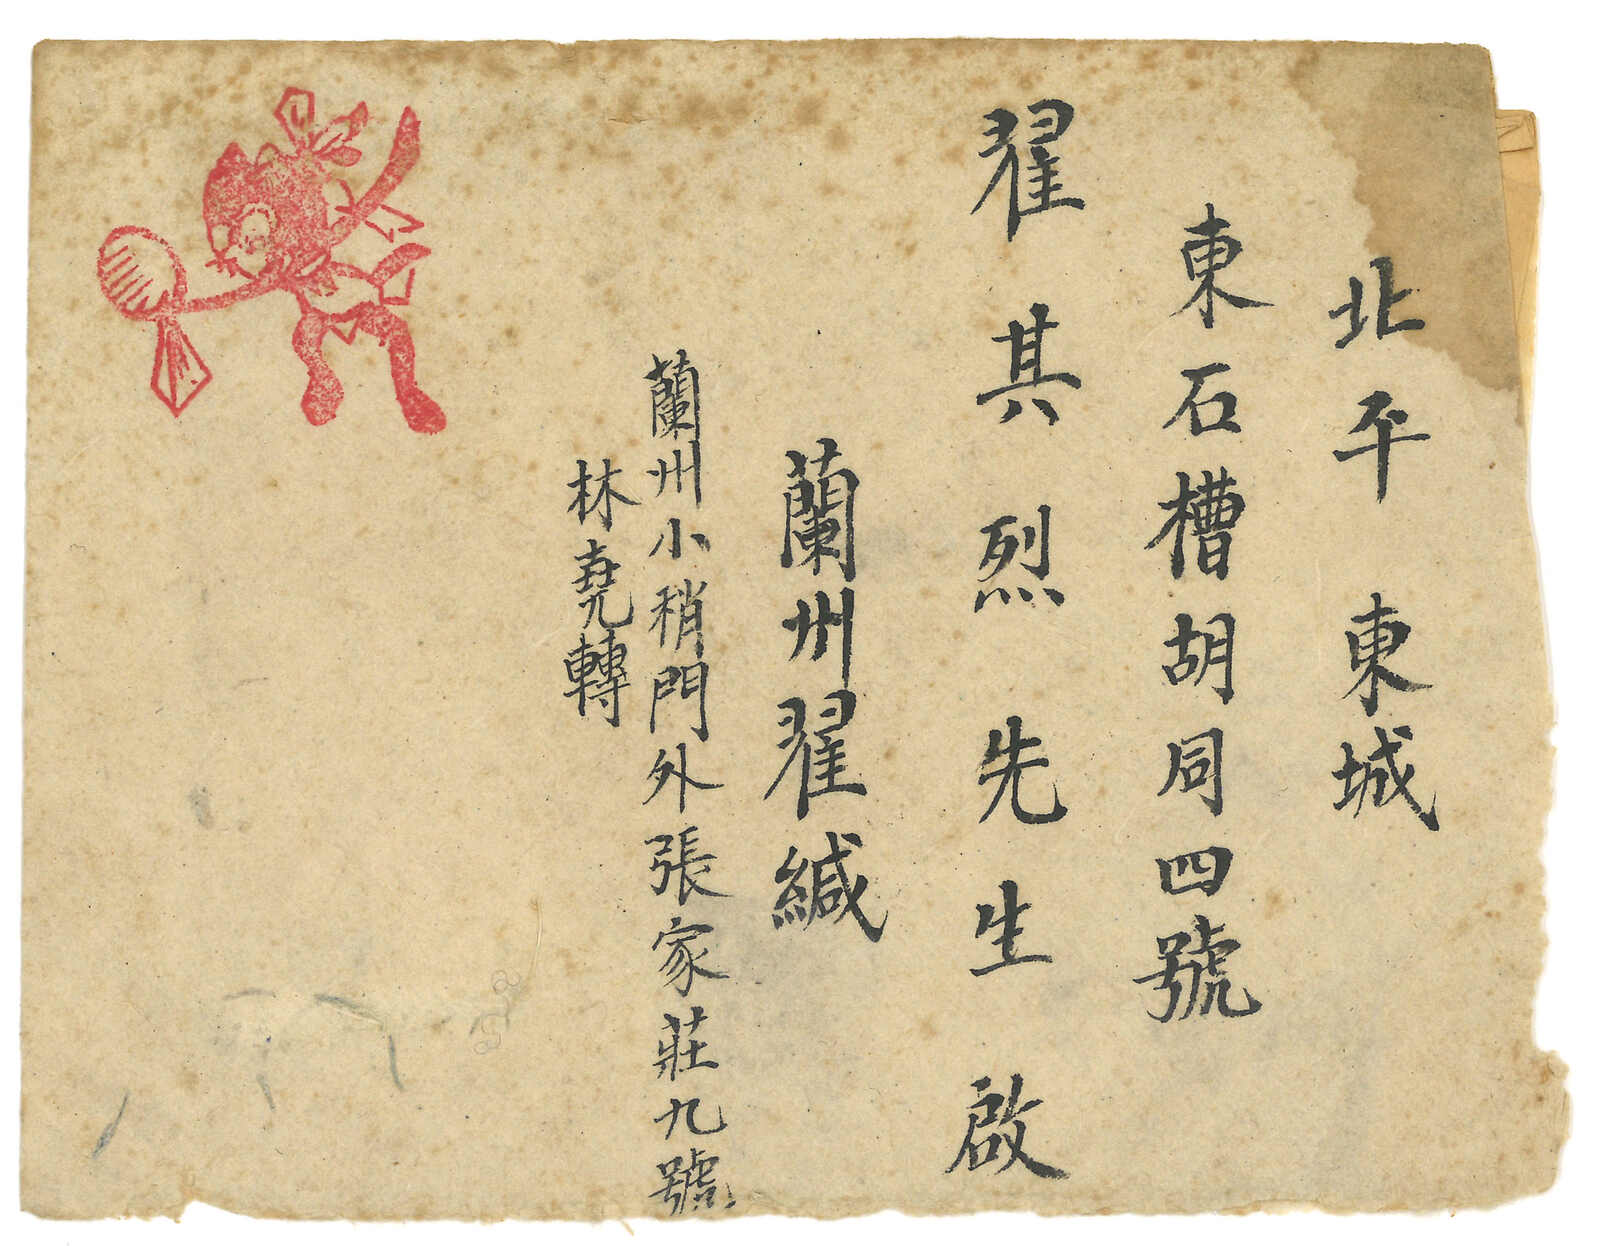 北平東城
東石槽胡同四號
翟其烈先生啟
蘭州翟緘
蘭州小稍門外張家莊九號
林堯轉